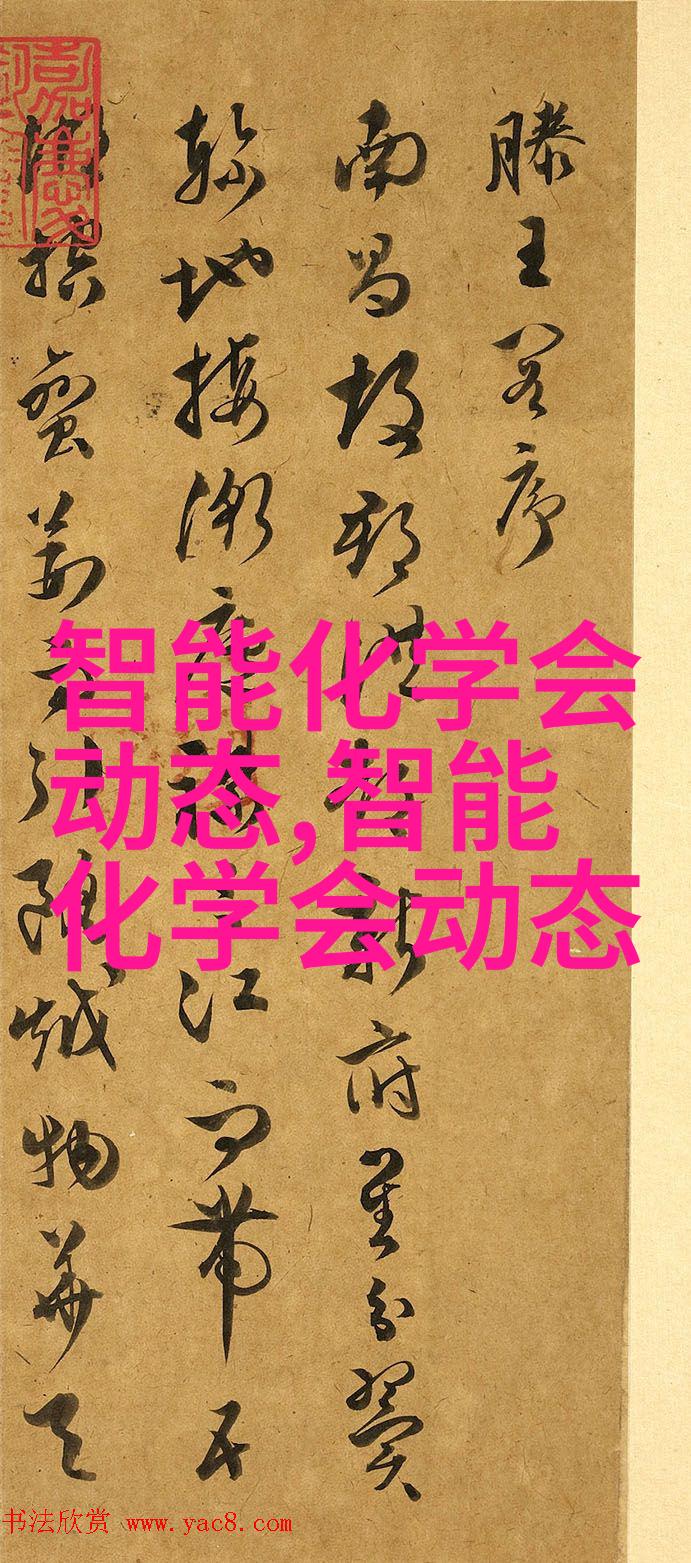 滕王閣序
南昌故郡洪都新府星分翼
軫地接衡廬襟三江而帶五
湖控蠻荊而引甌越物華天
智能化学会
动态,智能
化学会动态
书法欣赏 www.yac8.com